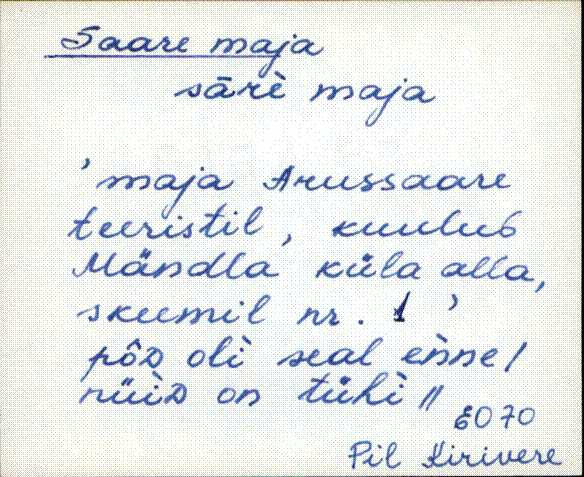 Saare maja
särè maja
'maja Arussaare
teeristil, kuulub
Mändla küla alla,
skeemil nr. 1'
põD oli seal enne/
nüiD on tühi //
EO 70
Pil Kirivere